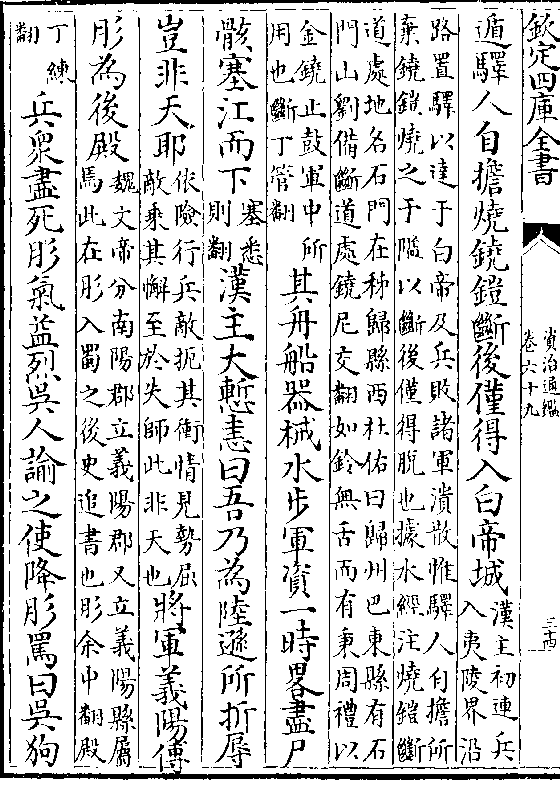 欽定四庫全書
資治通鑑
卷六十九
三十四
遁驛人自擔燒鐃鎧斷後僅得入白帝城
漢主初連兵
入夷陵界沿
路置驛以達于白帝及兵敗諸軍潰散惟驛人自擔所
棄鐃鎧燒之于隘以斷後僅得脫也據水經注燒鎧斷
道處地名石門在秭歸縣西杜佑曰歸州巴東縣有石
門山劉備斷道處鐃尼交翻如鈴無舌而有秉周禮以
金鐃止鼓軍中所
用也斷丁管翻
其舟船器械水步軍資一時畧盡尸
骸塞江而下
塞悉
則翻
漢主大慙恚曰吾乃為陸遜所折辱
豈非天耶
依險行兵敵扼其衝情見勢屈
敵乘其懈至於失師此非天也
將軍義陽傅
肜為後殿
魏文帝分南陽郡立義陽郡又立義陽縣屬
焉此在肜入蜀之後史追書也肜余中翻殿
丁練
翻
兵衆盡死肜氣益烈吳人諭之使降肜罵曰吳狗